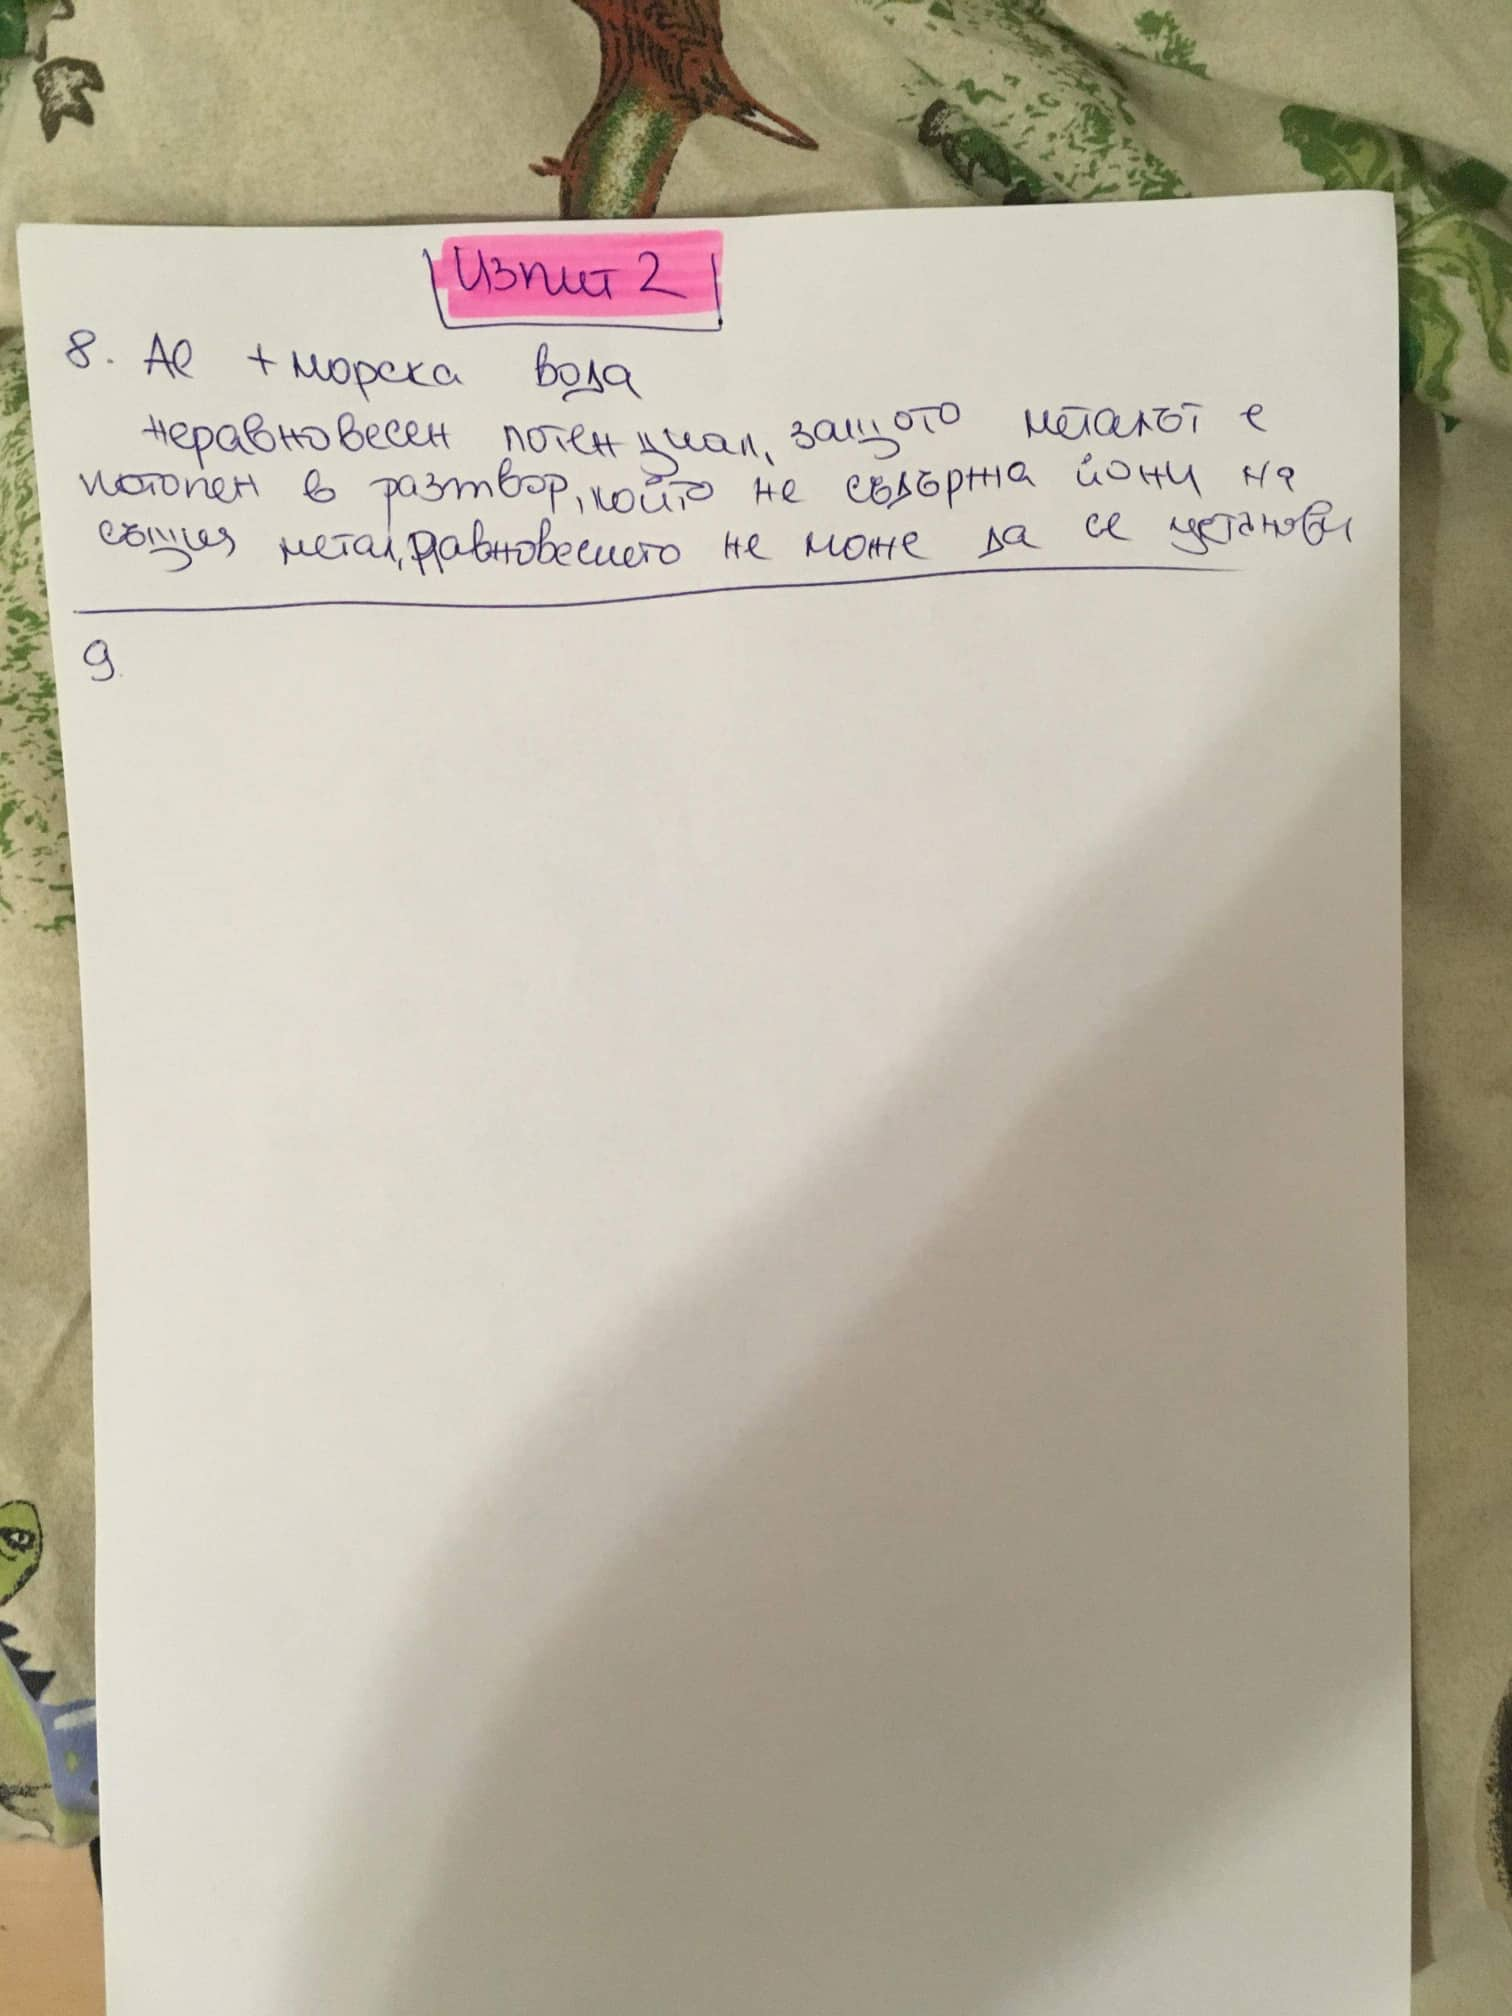 Изпит 2
8. Al + морска вода
неравновесен потенциал, защото металът е
потопен в разтвор, който не съдържа йони на
същия метал, равновесието не може да се установи
9.